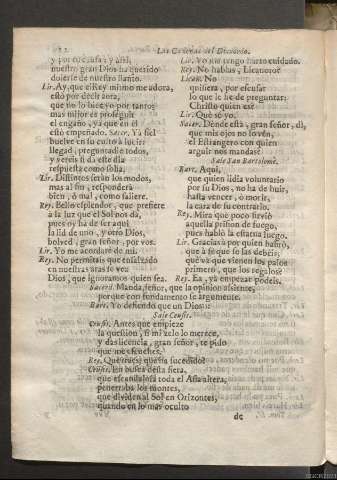 Las Cadenas del Demonio.
y por
nuestro gran Dios ha querido
dolerse de nuestro llanto.
Lir. Ay, que el Rey mismo me adora,
esto por decir aora,
que no lo hice yo por tantos
mas mllos es proseguir
el engaño, ya que en el
està empeñado. Sacer. Yà fiel
buelve en su culto à lucir:
llegad, preguntadle todos,
y vereis si dà este dia
respuesta como solia.
Lir. Distintos seràn los modos,
mas al fin, responderà
bien, ò mal, como saliere.
Rey. Bello esplendor, que prefiere
à la luz que el Sol nos dà,
pues oy ha de ser aqui
la lid de uno, y otro Dios,
bolved, gran señor, por vos.
Lir. Yo me acordarè de mì.
Rey. No permitais que ensalzado
en nuestras aras se vea
Dios, que ignoramos quien sea.
Lir. Yo me tengo harto cuidado.
Rey. No hablas, Licanoro?
Lican. No
quisiera, por escusar
lo que le he de preguntar:
Christo quien es?
Lir. Què sè yo.
Sacer. Dònde està, gran señor, dì,
que mis ojos no lo vèn,
el Estrangero con quien
arguir nos mandas?
Sale San Bartolomè.
Bart. Aqui,
que quien lidia voluntario
por su Dios, no ha de huir,
hasta vencer, ò morir,
la cara de su contrario.
Rey. Mira que poco sirviò
aquella prision de fuego,
pues hablò la estatua luego.
Lir. Gracias à por quien hablò,
que à fe que se las debeis;
què và que vienen los palos
primero, que los regalos?
Rey. Ea, yà empezar podeis.
Sacerd. Manda, señor, que la opinion assiente,
porque con fundamento se argumente.
Bart. Yo defiendo que un Dios::
Sale Ceusis.
Ceusis. Antes que empieze
la question, si mi zelo lo merece,
y das licencia, gran señor, te pido
que me escuches.
Rey. Què traes? què ha sucedido?
Ceusis. En busca desta fiera,
que escandaliza toda el Asia altera,
penetraba los montes,
que dividen al Sol en Orizontes,
quando en lo mas oculto
de